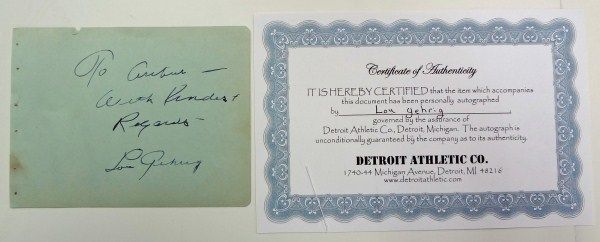 To Arbus –
With Kindest
Regards –
Lou Gehrig
Certificate of Authenticity
IT IS HEREBY CERTIFIED that the item which accompanies
this document has been personally autographed
by Lou Gehrig
governed by the assurance of
Detroit Athletic Co., Detroit, Michigan. The autograph is
unconditionally guaranteed by the company as to its authenticity.
DETROIT ATHLETIC CO.
1740-44 Michigan Avenue, Detroit, MI 48216
www.detroitathletic.com